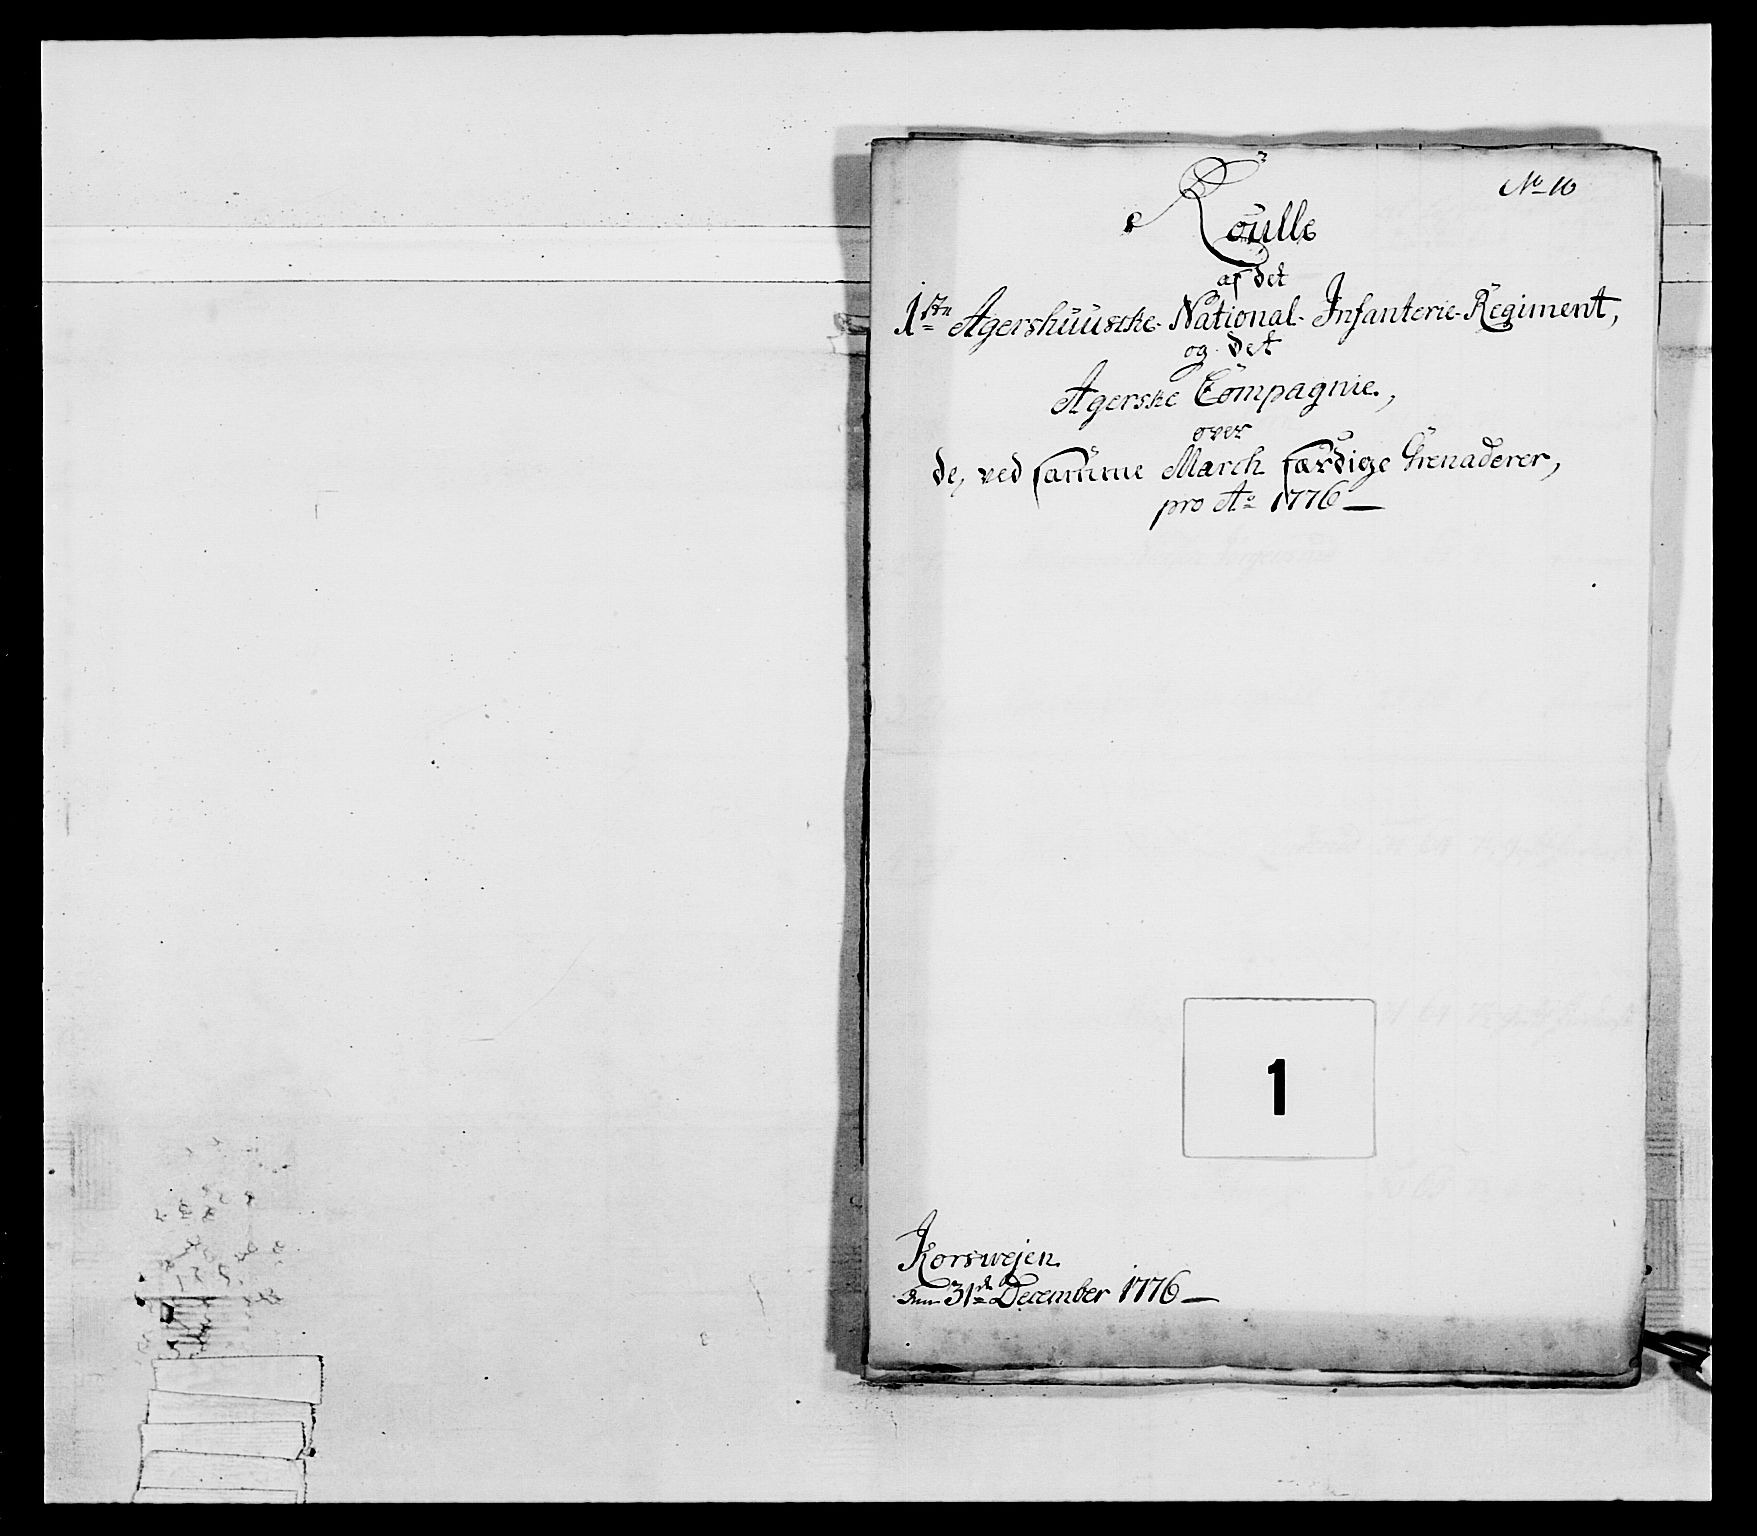 No 10
Roulle
af det
1ste Agershuuscke National Infanterie Regiment,
og det
Agerske Compagnie,
over
de, ved samme March færdige Grenaderer,
pro Ao 1776
1
Korswejen
den 31te December 1776